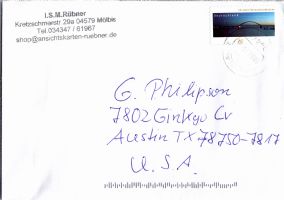 I.S.M.Rübner
Kretzschmarstr. 29a 04579 Mölbis
Tel.034347 / 61967
shop@ansichtskarten-ruebner.de
Deutschland
G. Philipson
7802 Ginkgo Cv
Austin TX 78750-7817
U.S.A.